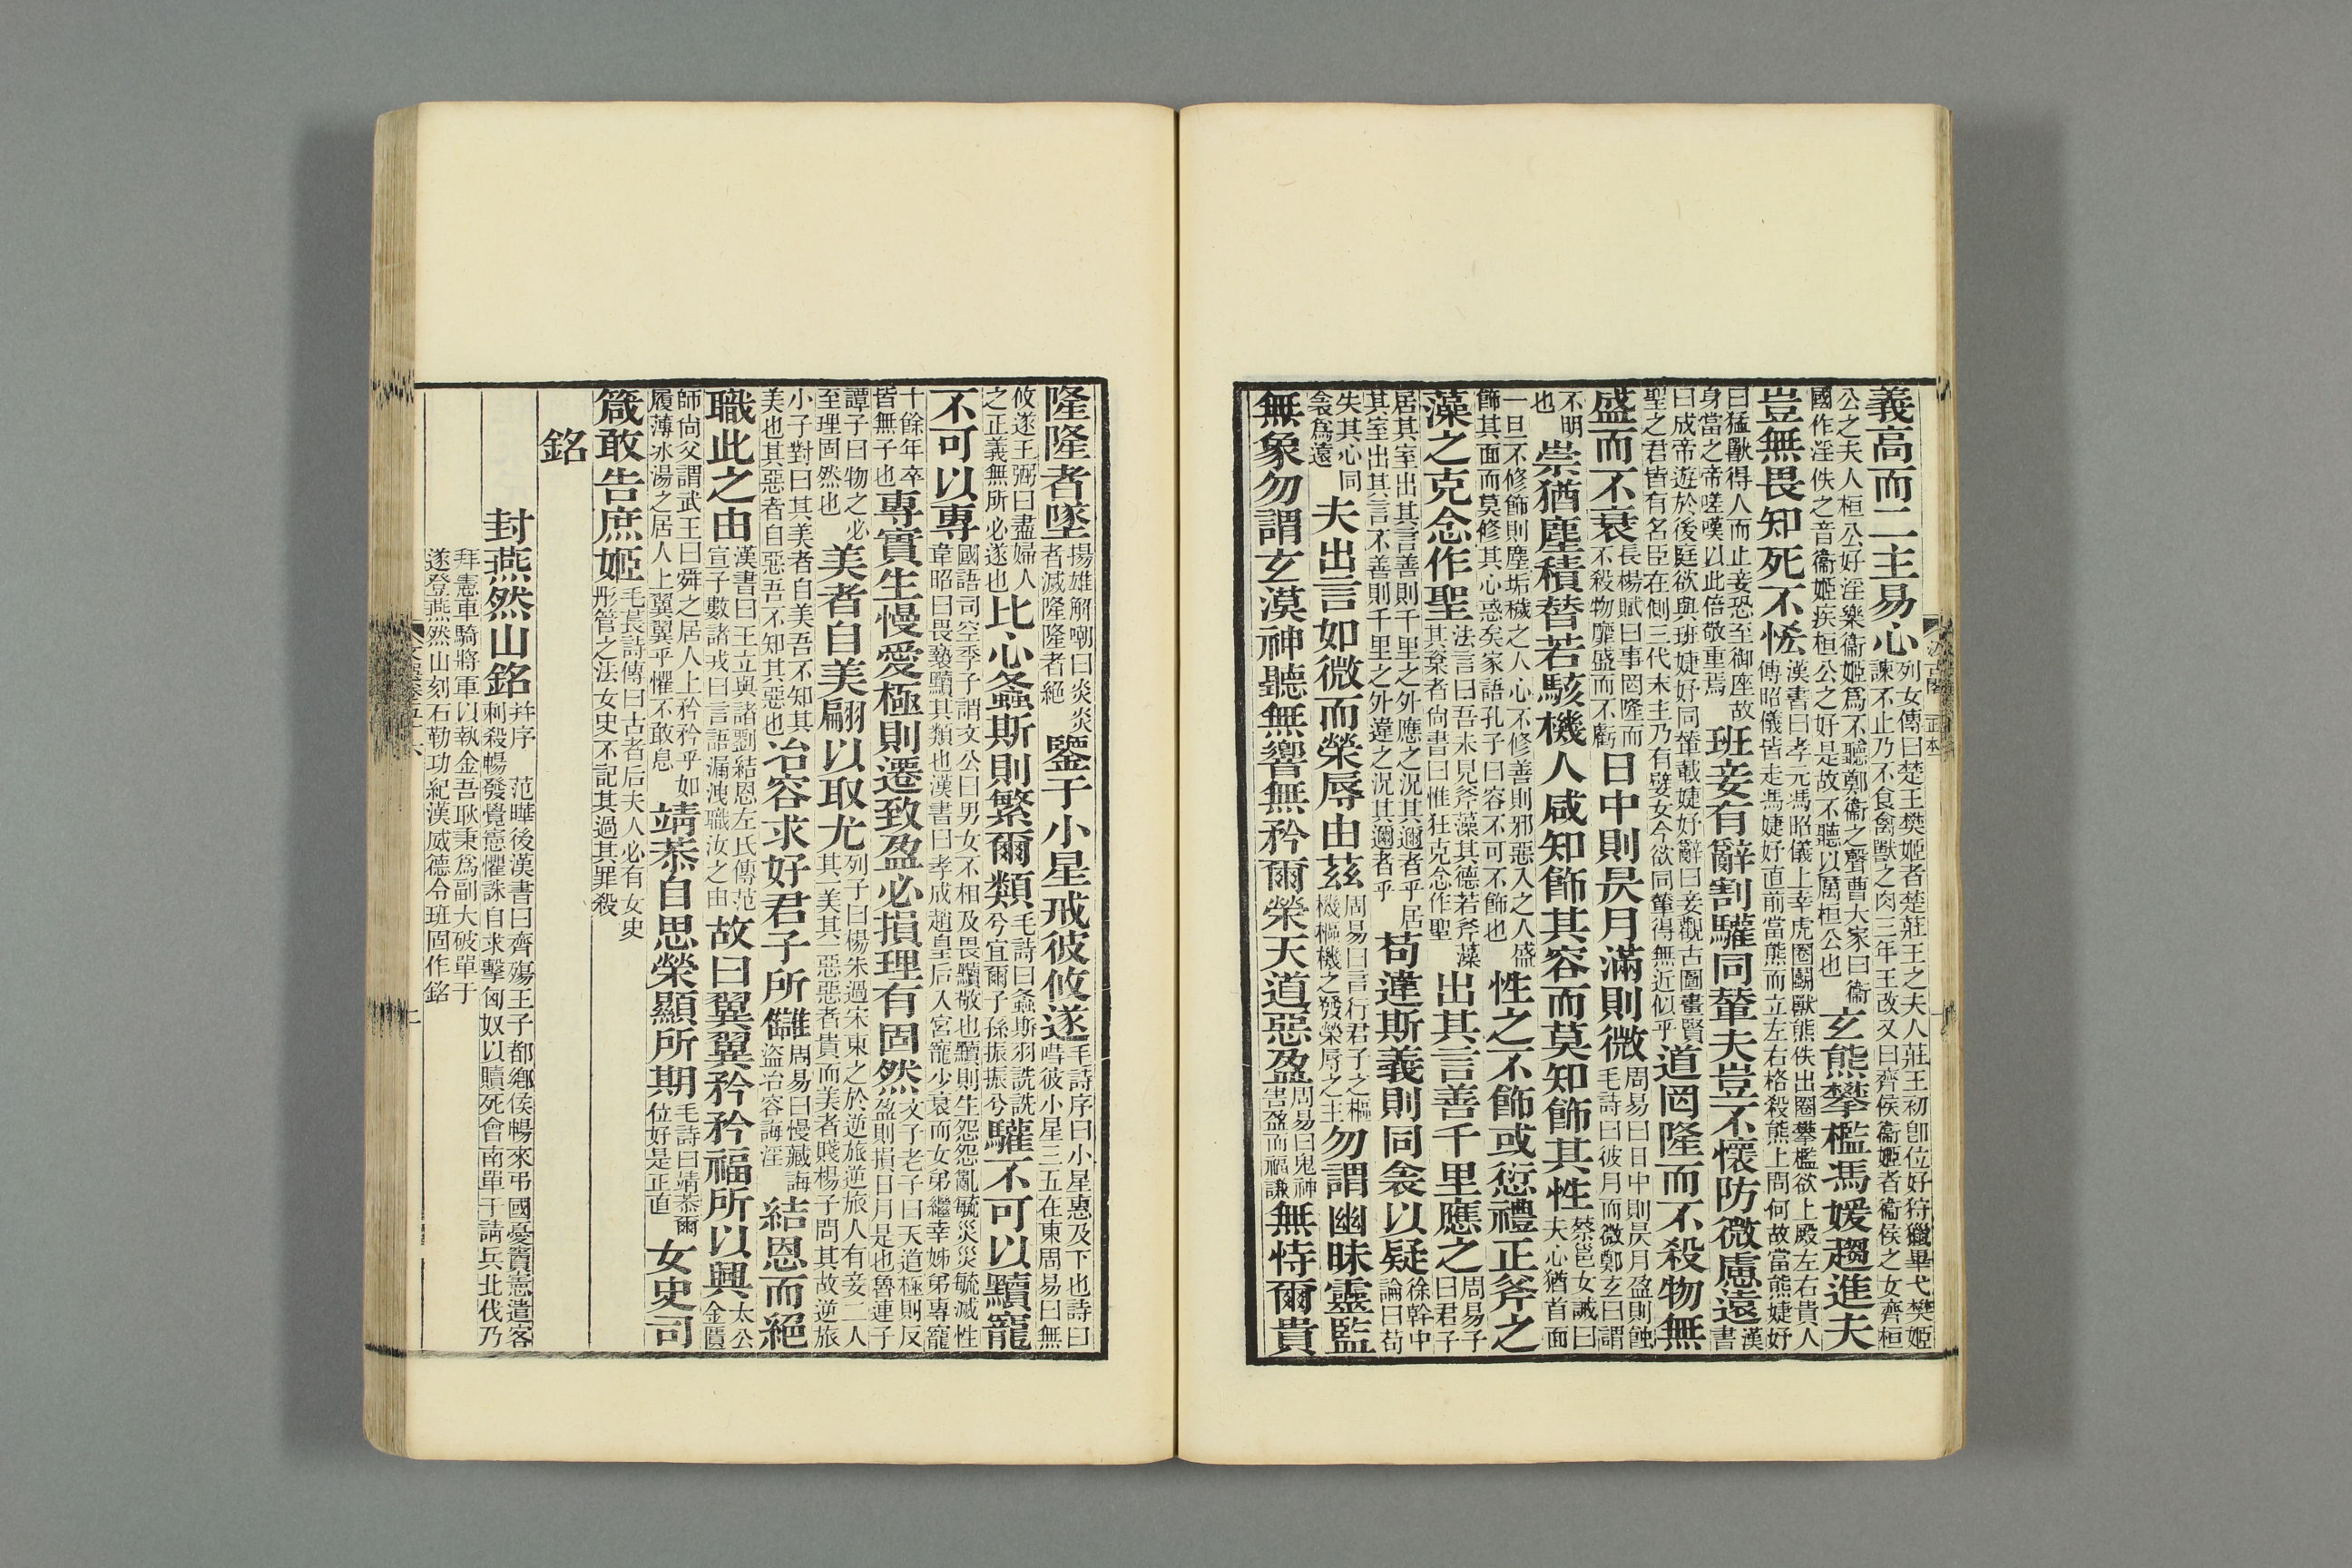 義高而二主易心列女傳曰楚王樊姬者楚莊王之夫人莊王初卽位好狩獵畢弋樊姬諫不止乃不食禽獸之肉三年王改又曰齊侯衞姬者衞侯之女齊桓
公之夫人桓公好淫樂衞姬爲不聽鄭衞之聲曹大家曰衞國作淫佚之音衞姬疾桓公之好是故不聽以厲桓公也玄熊攀檻馮媛趨進夫
豈無畏知死不恡漢書曰孝元馮昭儀上幸虎圈鬬獸熊佚出圈攀檻欲上殿左右貴人傅昭儀皆走馮婕妤直前當熊而立左右格殺熊上問何故當熊婕妤
曰猛獸得人而止妾恐至御座故身當之帝嗟嘆以此倍敬重焉班妾有辭割驩同輦夫豈不懷防微慮遠漢書
曰成帝遊於後庭欲與班婕妤同輦載婕妤辭曰妾觀古圖畫賢聖之君皆有名臣在側三代末主乃有嬖女今欲同輦得無近似乎道罔隆而不殺物無
盛而不衰長楊賦曰事罔隆而不殺物靡盛而不虧日中則昃月滿則微周易曰日中則昃月盈則蝕毛詩曰彼月而微鄭玄曰謂
不明也崇猶塵積替若駭機人咸知飾其容而莫知飾其性蔡邕女誡曰夫心猶首面
一旦不修飾則塵垢穢之人心不修善則邪惡入之人盛飾其面而莫修其心惑矣家語孔子曰容不可不飾也性之不飾或愆禮正斧之
藻之克念作聖法言曰吾未見斧藻其德若斧藻其楶者尙書曰惟狂克念作聖出其言善千里應之周易子曰君子
居其室出其言善則千里之外應之況其邇者乎居其室出其言不善則千里之外違之況其邇者乎苟違斯義則同衾以疑徐幹中論曰苟
失其心同衾爲遠夫出言如微而榮辱由茲周易曰言行君子之樞機樞機之發榮辱之主勿謂幽昧靈監
無象勿謂玄漠神聽無響無矜爾榮天道惡盈周易曰鬼神害盈而福謙無恃爾貴
隆隆者墜揚雄解嘲曰炎炎者滅隆隆者絕鑒于小星戒彼攸遂毛詩序曰小星惠及下也詩曰嘒彼小星三五在東周易曰無
攸遂王弼曰盡婦人之正義無所必遂也比心螽斯則繁爾類毛詩曰螽斯羽詵詵兮宜爾子孫振振兮驩不可以黷寵
不可以專國語司空季子謂文公曰男女不相及畏黷敬也黷則生怨怨亂毓災災毓滅性韋昭曰畏褻黷其類也漢書曰孝成趙皇后入宮寵少衰而女弟繼幸姊弟專寵
十餘年卒皆無子也專實生慢愛極則遷致盈必損理有固然文子老子曰天道極則反盈則損日月是也魯連子
譚子曰物之必至理固然也美者自美翩以取尤列子曰楊朱過宋東之於逆旅逆旅人有妾二人其一美其一惡惡者貴而美者賤楊子問其故逆旅
小子對曰其美者自美吾不知其美也其惡者自惡吾不知其惡也冶容求好君子所讎周易曰慢藏誨盜冶容誨淫結恩而絕
職此之由漢書曰王立與諸劉結恩左氏傳范宣子數諸戎曰言語漏洩職汝之由故曰翼翼矜矜福所以興太公金匱
師尙父謂武王曰舜之居人上矜矜乎如履薄冰湯之居人上翼翼乎懼不敢息靖恭自思榮顯所期毛詩曰靖恭爾位好是正直女史司
箴敢告庶姬毛萇詩傳曰古者后夫人必有女史彤管之法女史不記其過其罪殺
銘
封燕然山銘幷序 范曄後漢書曰齊殤王子都鄕侯暢來弔國憂竇憲遣客刺殺暢發覺憲懼誅自求擊匈奴以贖死會南單于請兵北伐乃
拜憲車騎將軍以執金吾耿秉爲副大破單于遂登燕然山刻石勒功紀漢威德令班固作銘